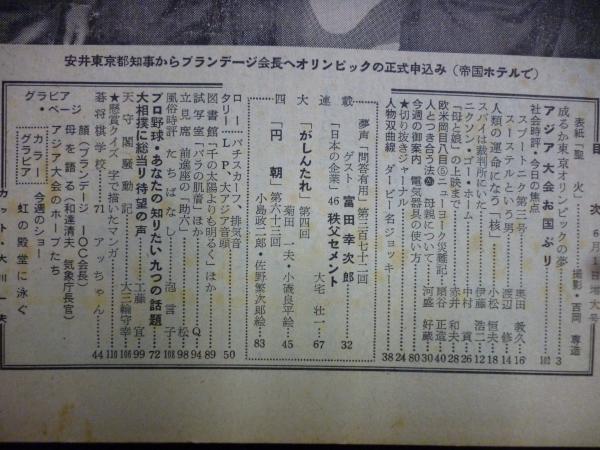 安井東京都知事からブランデージ会長へオリンピックの正式申込み(帝国ホテルで)
目次 6月1日増大号
表紙「聖火」 撮影・吉岡専造
成るか東京オリンピックの夢 3
アジア大会お国ぶり 102
社会時評・今日の焦点
スプートニク第三号 奥田教久 16
スーステルという男 渡辺修 14
人類の運命になう「核」 小松恒夫 18
スパイは裁判所にいた 伊藤浩二 12
ニクソン・ゴー・ホーム 中村貢 26
「母と娘」の上訴まで 赤井和夫 28
欧米岡目八目⑤ニューヨーク災難記 扇谷正造 40
人とつき合う法㉕ 母親について 河盛好蔵 30
今週の御案内 電気器具の使い方 80
★切り抜きジャーナル 24
人物双曲線 ダービー名ジョッキー 38
夢声「問答有用」第三百七十二回
ゲスト 富田幸次郎 32
連載
「日本の企業」46 秩父セメント 大宅壮一 67
四大
「がしんたれ」第四回 菊田一夫・小磯良平絵 45
「円朝」第六十三回 小島政二郎・佐野繁次郎絵 83
ロータリー パチスカーフ、排気音
L・P アジア大会音頭 50
図書館「千の太陽よりも明るく」ほか 89
試写室「バラの肌着」ほか Q 94
立見席 前進座の「助六」 松 98
風俗時評 たちばなし 泡言子 108
プロ野球・あなたの知りたい九つの話題 72
大相撲に総当り待望の声 工藤宜 99
天守閣騒動記 大三輪守幸 106
★懸賞クイズ 字で描いたマンガ 110
碁将棋学校・71 アッちゃん 44
グラビア・ページ
顔(ブランデージIOC会長)
母を語る(和達清夫 気象庁長官)
アジア大会のホープたち
カラーグラビア
今週のショー
虹の殿堂に泳ぐ
カット・大川一夫